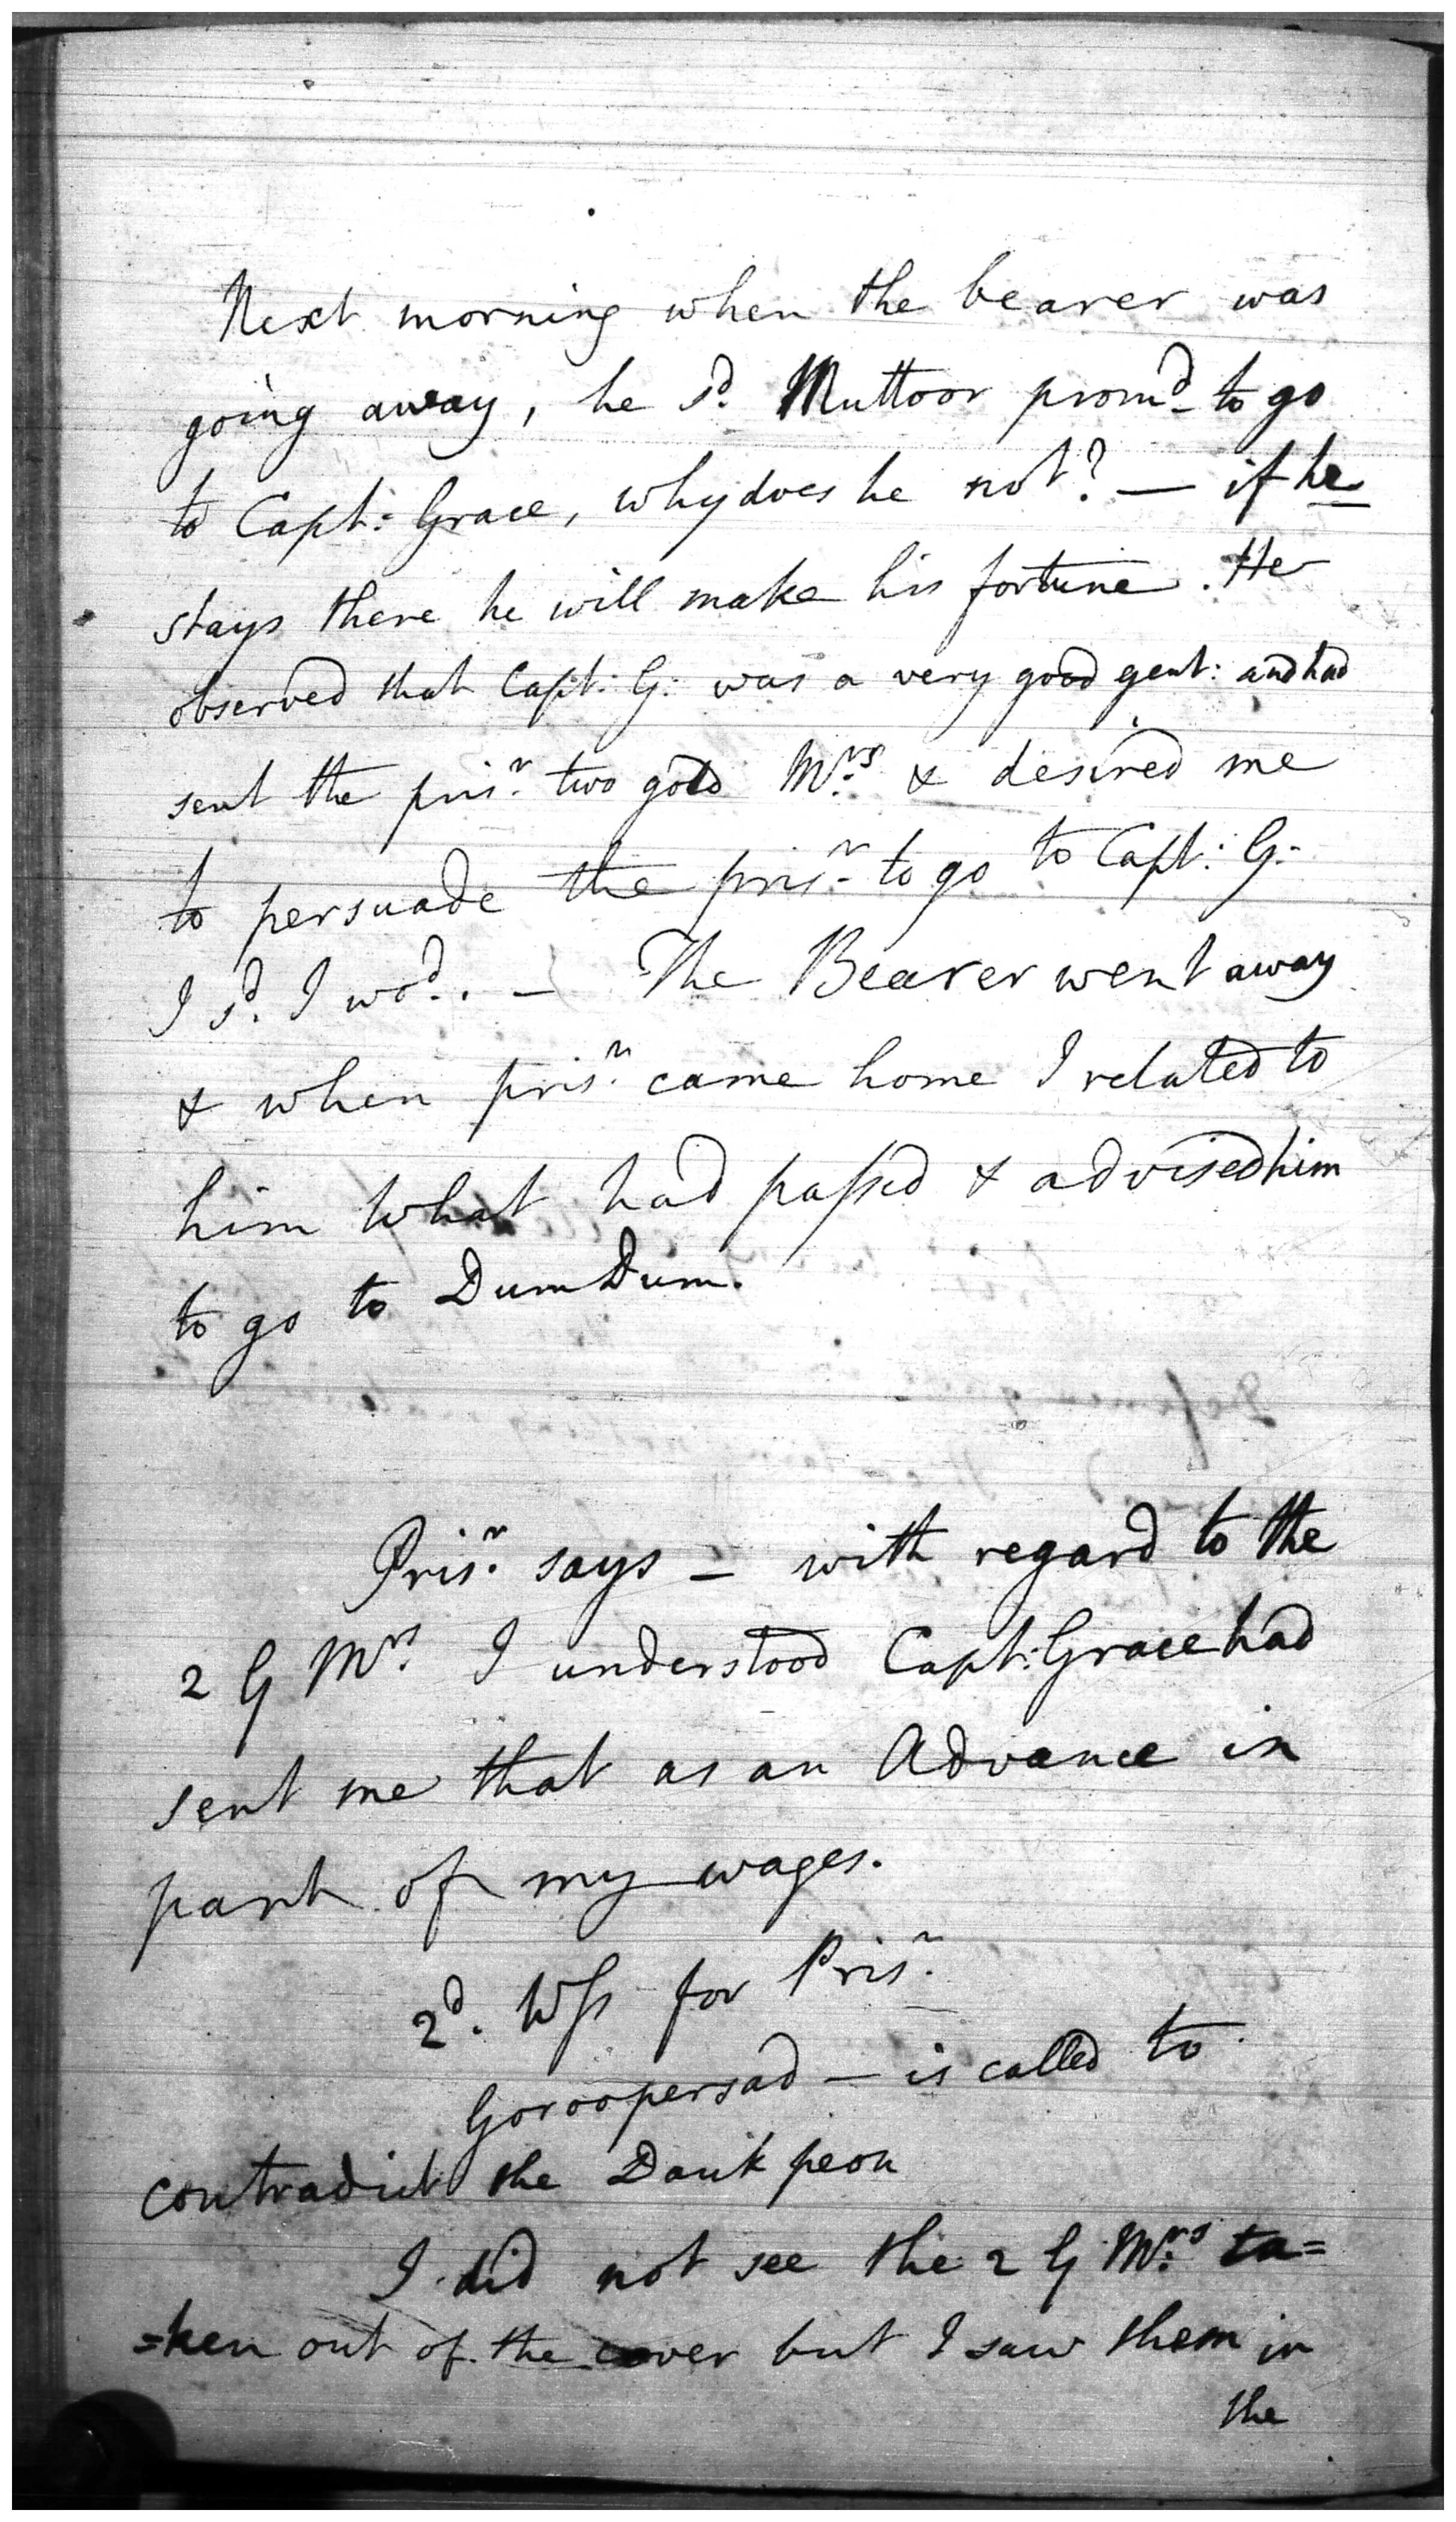 Next morning when the bearer was
going away, he sd. Muttoor promd. to go
to Capt: Grace, why does he not? — if he
stays there he will make his fortune. He
observed that Capt: G: was a very good gent: and had
sent the prisr. two gold Mrs. & desired me
to persuade the prisr. to go to Capt: G:
I sd. I wod. — The Bearer went away
& when prisr. came home I related to
him what had passed & advised him
to go to DumDum.
Prisr. says — with regard to the
2 G Mrs. I understood Capt: Grace had
sent me that as an Advance in
part of my wages.
2d. Wss for Prisr.
Goroopersad — is called to
contradict the Dauk peon
I did not see the 2 G Mrs. ta=
=ken out of the cover but I saw them in
the